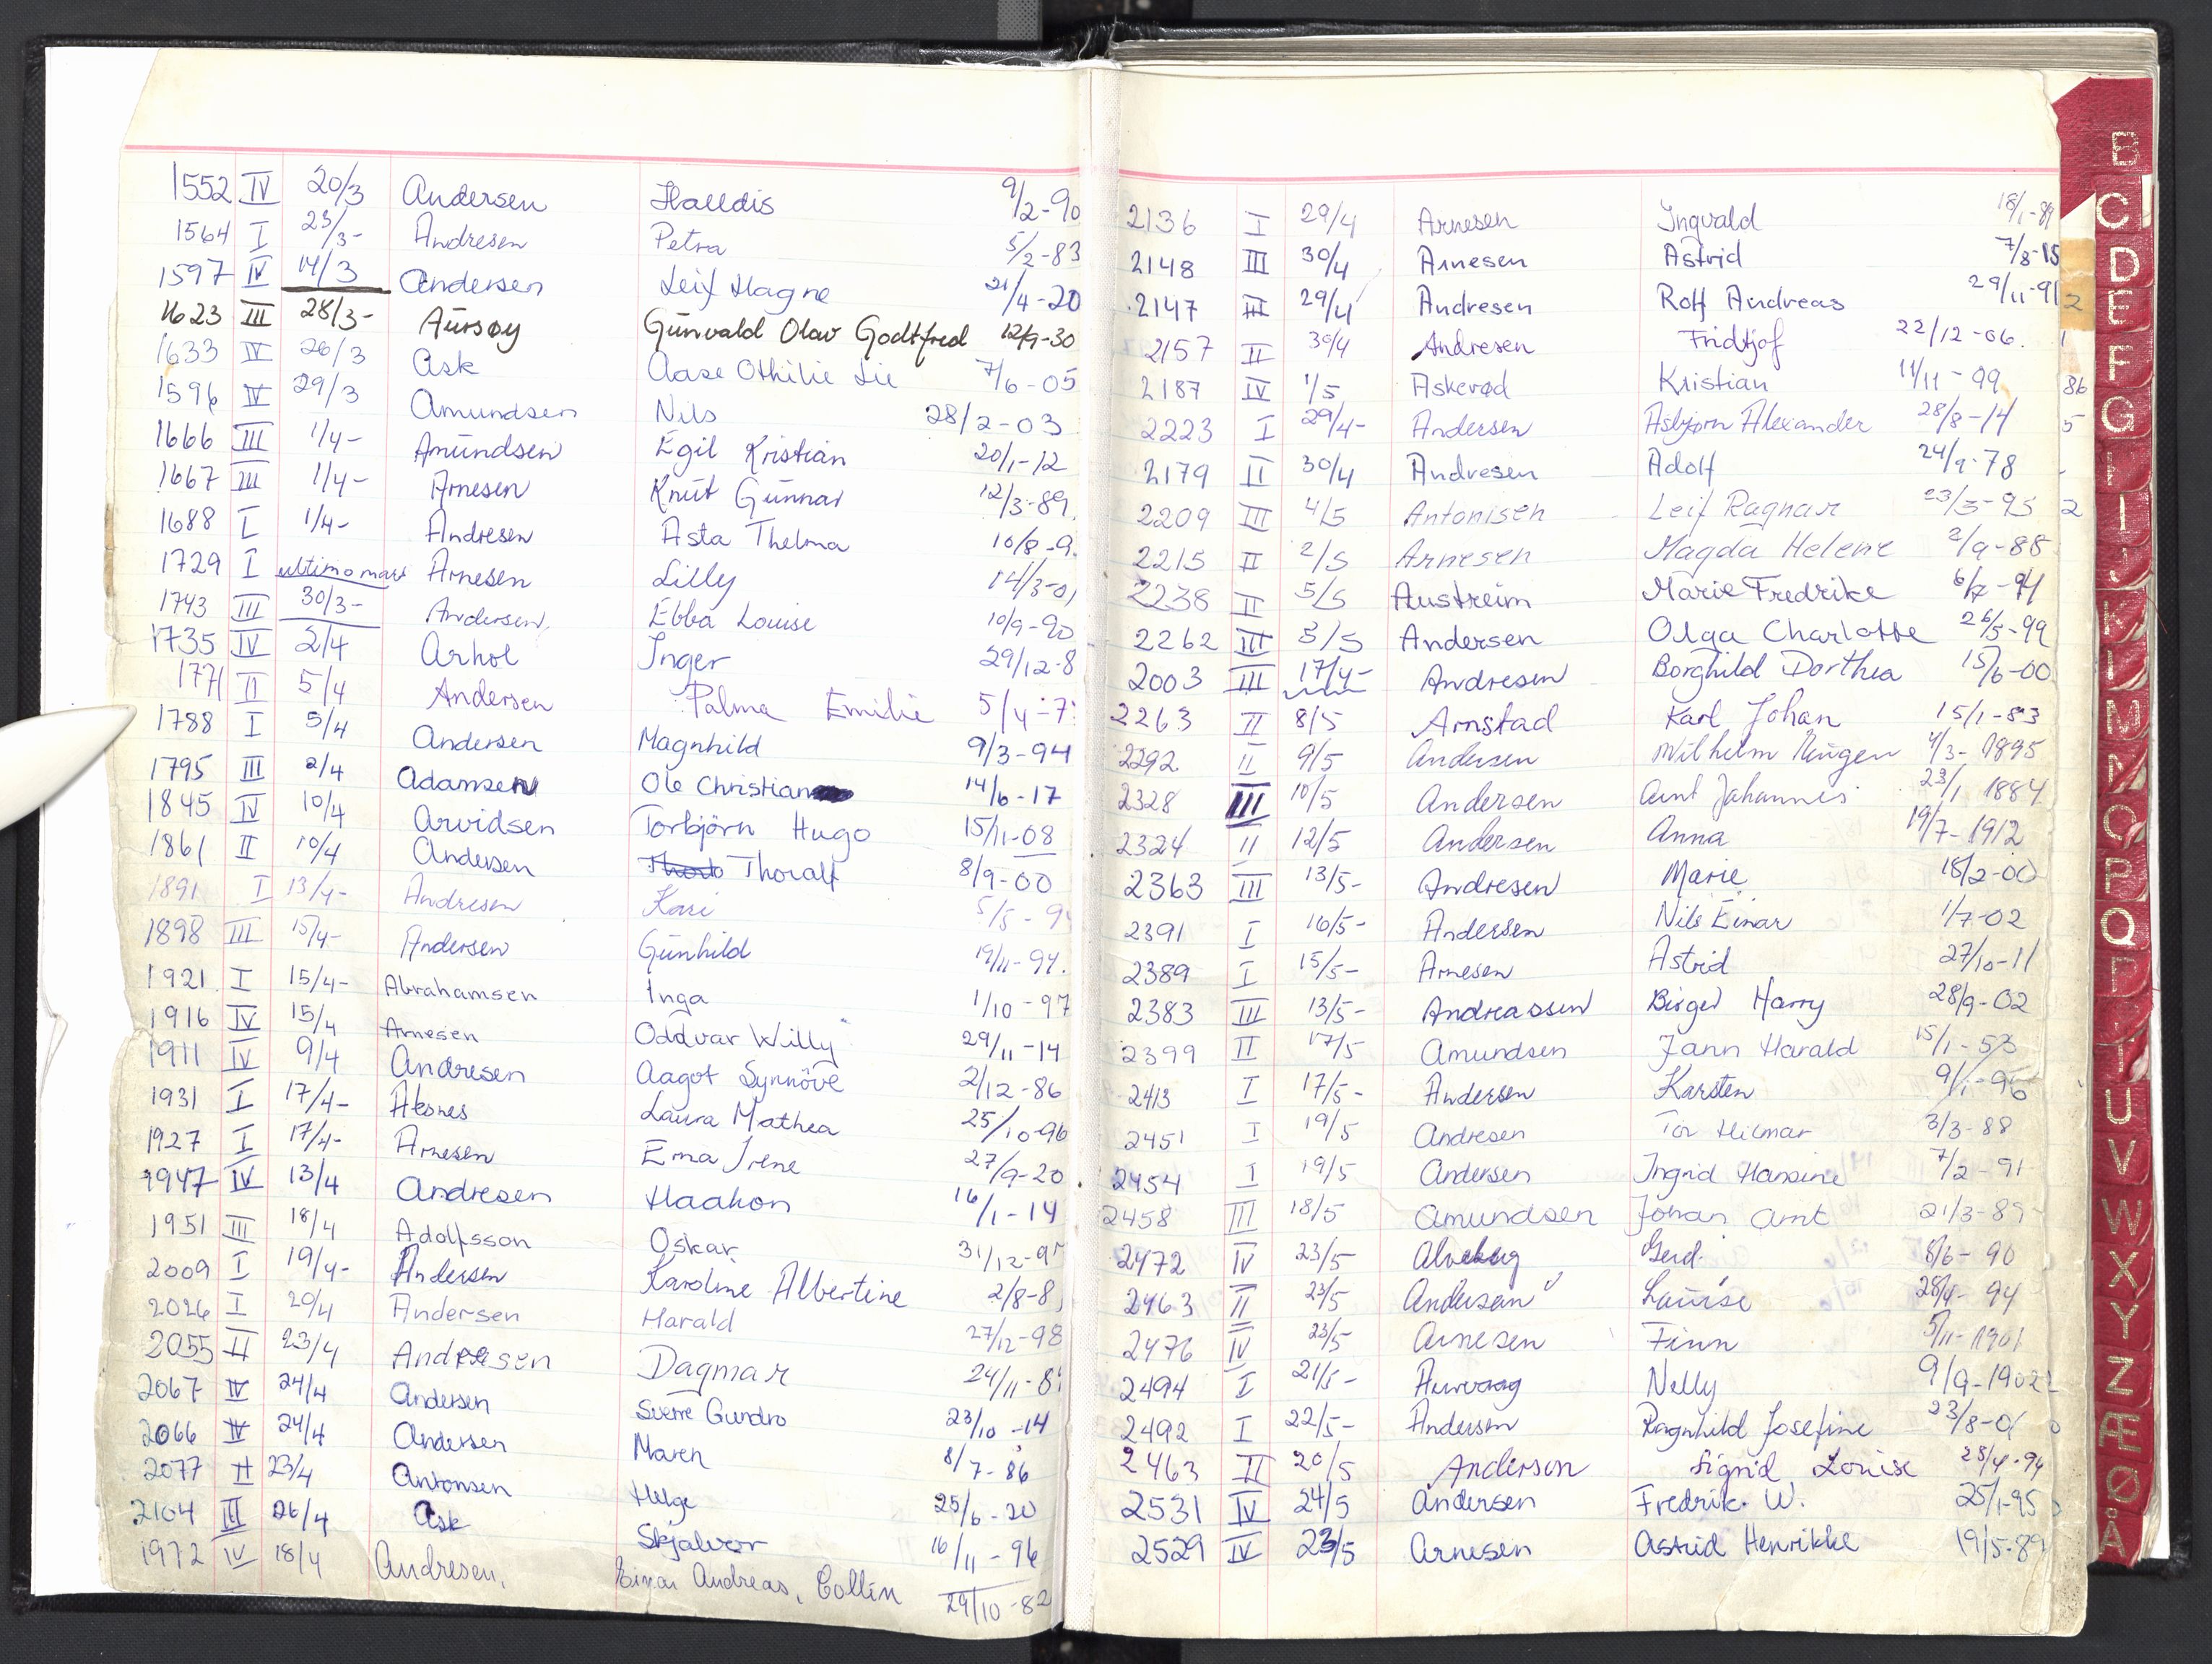 1552 IV 20/3 Andersen Halldis 9/2-90
1564 I 23/3- Andresen Petra 5/2-83
1597 IV 14/3 Andersen Leif Magne 21/4-20
1623 III 28/3- Aursøy Gunvald Olav Godtfred 12/9-30
1633 IV 26/3 Ask Aase Othilie Lie 7/6-05
1596 IV 29/3 Amundsen Nils 28/2-03
1666 III 1/4- Amundsen Egil Kristian 20/1-12
1667 III 1/4- Arnesen Knut Gunnar 12/3-89
1688 I 1/4- Andresen Asta Thelma 10/8-9
1729 I ultimo mars Arnesen Lilly 14/3-01
1743 III 30/3- Andersen Ebba Louise 10/9-90
1735 IV 2/4 Arhol Inger 29/12-8
1771 II 5/4 Andersen Palma Emilie 5/4-7
1788 I 5/4 Andersen Magnhild 9/3-94
1795 III 2/4 Adamsen Ole Christian 14/6-17
1845 IV 10/4 Arvidsen Torbjörn Hugo 15/11-08
1861 II 10/4 Andersen Thoralf 8/9-00
1891 I 13/4- Andresen Kari 5/5-9
1898 III 15/4- Andersen Gunhild 19/11-94.
1921 I 15/4- Abrahamsen Inga 1/10-97
1916 IV 15/4 Arnesen Oddvar Willy 29/11-14
1911 IV 9/4 Andresen Aagot Synnöve 2/12-86
1931 I 17/4- Aksnes Laura Mathea 25/10-96
1927 I 17/4- Arnesen Erna Irene 27/9-20
1947 IV 13/4 Andresen Haakon 16/1-14
1951 III 18/4 Adolfsson Oskar 31/12-9
2009 I 19/4- Andersen Karoline Albertine 2/8-8
2026 I 20/4 Andersen Harald 27/12-98
2055 II 23/4 Andresen Dagmar 24/11-8
2067 IV 24/4 Andersen Sverre Gundro 23/10-14
2066 IV 24/4 Andersen Maren 8/7-86
2077 II 23/4 Antonsen Helge 25/6-20
2104 III 26/4 Ask Skjalvor 16/11-96
1972 IV 18/4 Andresen, Einar Andreas, Collin 29/10-82
2136 I 29/4 Arnesen Ingvald 18/1-89
2148 III 30/4 Arnesen Astrid 7/8-15
2147 III 29/4 Andresen Rolf Andreas 29/11-91
2157 II 30/4 Andresen Fridtjof 22/12-06.
2187 IV 1/5 Askerød Kristian 11/11-09
2223 I 29/4- Andersen Asbjørn Alexander 28/8-14
2179 II 30/4 Andresen Adolf 24/9-78
2209 III 4/5 Antonisen Leif Ragnar 23/3-95
2215 II 2/5 Arnesen Magda Helene 2/9-88
2238 II 5/5 Austreim Marie Fredrike 6/2-94
2262 III 5/5 Andersen Olga Charlotte 26/5-99
2003 III 17/4- Andresen Borghild Dorthea 15/6-00
2263 II 8/5 Arnstad Karl Johan 15/1-83
2292 II 9/5 Andersen Wilhelm 4/3-1895
2328 III 10/5 Andersen Arnt Johannes 23/1 1884
2324 II 12/5 Andersen Anna 19/7-1912
2363 III 13/5- Andresen Marie 18/2-00
2391 I 16/5- Andersen Nils Einar 1/7-02
2389 I 15/5- Arnesen Astrid 27/10-11
2383 III 13/5- Andreassen Birger Harry 28/9-02
2399 II 17/5 Amundsen Jann Harald 15/1-53
2413 I 17/5- Andersen Karsten 9/1-96
2451 I 19/5 Andresen Tor Hilmar 3/3-88
2454 I 19/5 Andersen Ingrid Hansine 7/2-91
2458 III 18/5 Amundsen Johan Arnt 21/3-89
2472 IV 23/5 Gerd 8/6-90
2463 II 23/5 Andersen Louise 28/4-94
2476 IV 23/5 Arnesen Finn 5/11-1901
2494 I 21/5- Aurvaag Nelly 9/9-1902
2492 I 22/5- Andersen Ragnhild Josefine 23/8-0
2463 II 20/5 Anderson Sigrid Louise 28/4-94
2531 IV 24/5 Andersen Fredrik W. 25/1-95
2529 IV 23/5 Arnesen Astrid Henrikke 19/5-89
B
C
D
E
F
G
H
I
J
K
L
M
N
O
P
Q
R
S
T
U
V
W
X
Y
Z
Æ
Ø
Å